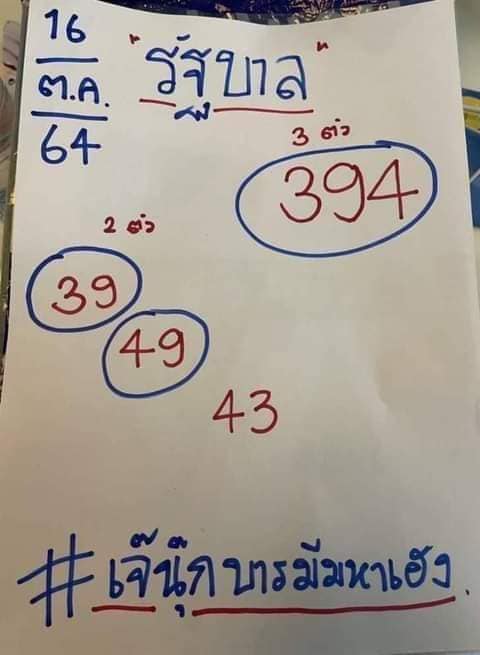 16
ต.ค.
64
"รัฐบาล"
3 ตัว
394
2 ตัว
39
49
43
#เจ๊นุ๊กบารมีมหาเฮง